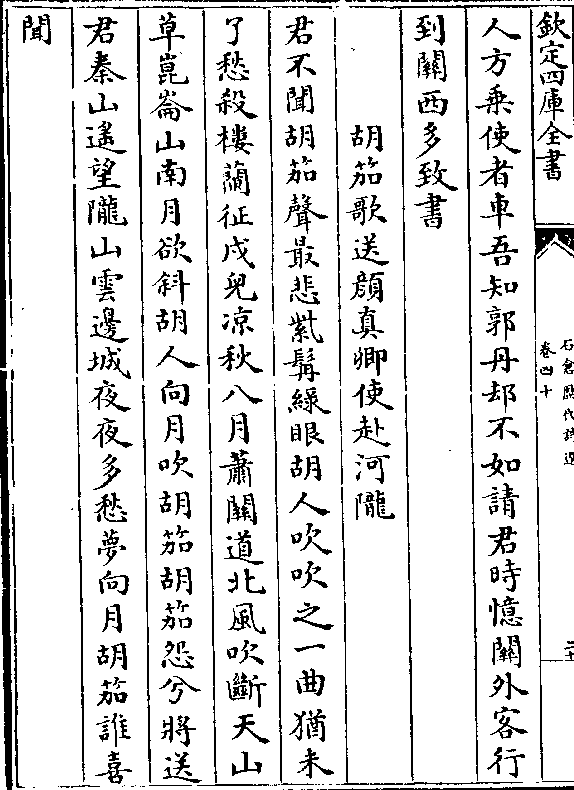 欽定四庫全書
石倉歷代詩選
卷四十
人方乗使者車吾知郭丹却不如請君時憶關外客行
到關西多致書
胡笳歌送顔真卿使赴河隴
君不聞胡笳聲最悲紫髯綠眼胡人吹吹之一曲猶未
了愁殺樓蘭征戍兒凉秋八月蕭關道北風吹斷天山
草崑崙山南月欲斜胡人向月吹胡笳胡笳怨兮將送
君秦山遙望隴山雲邊城夜夜多愁夢向月胡笳誰喜
聞